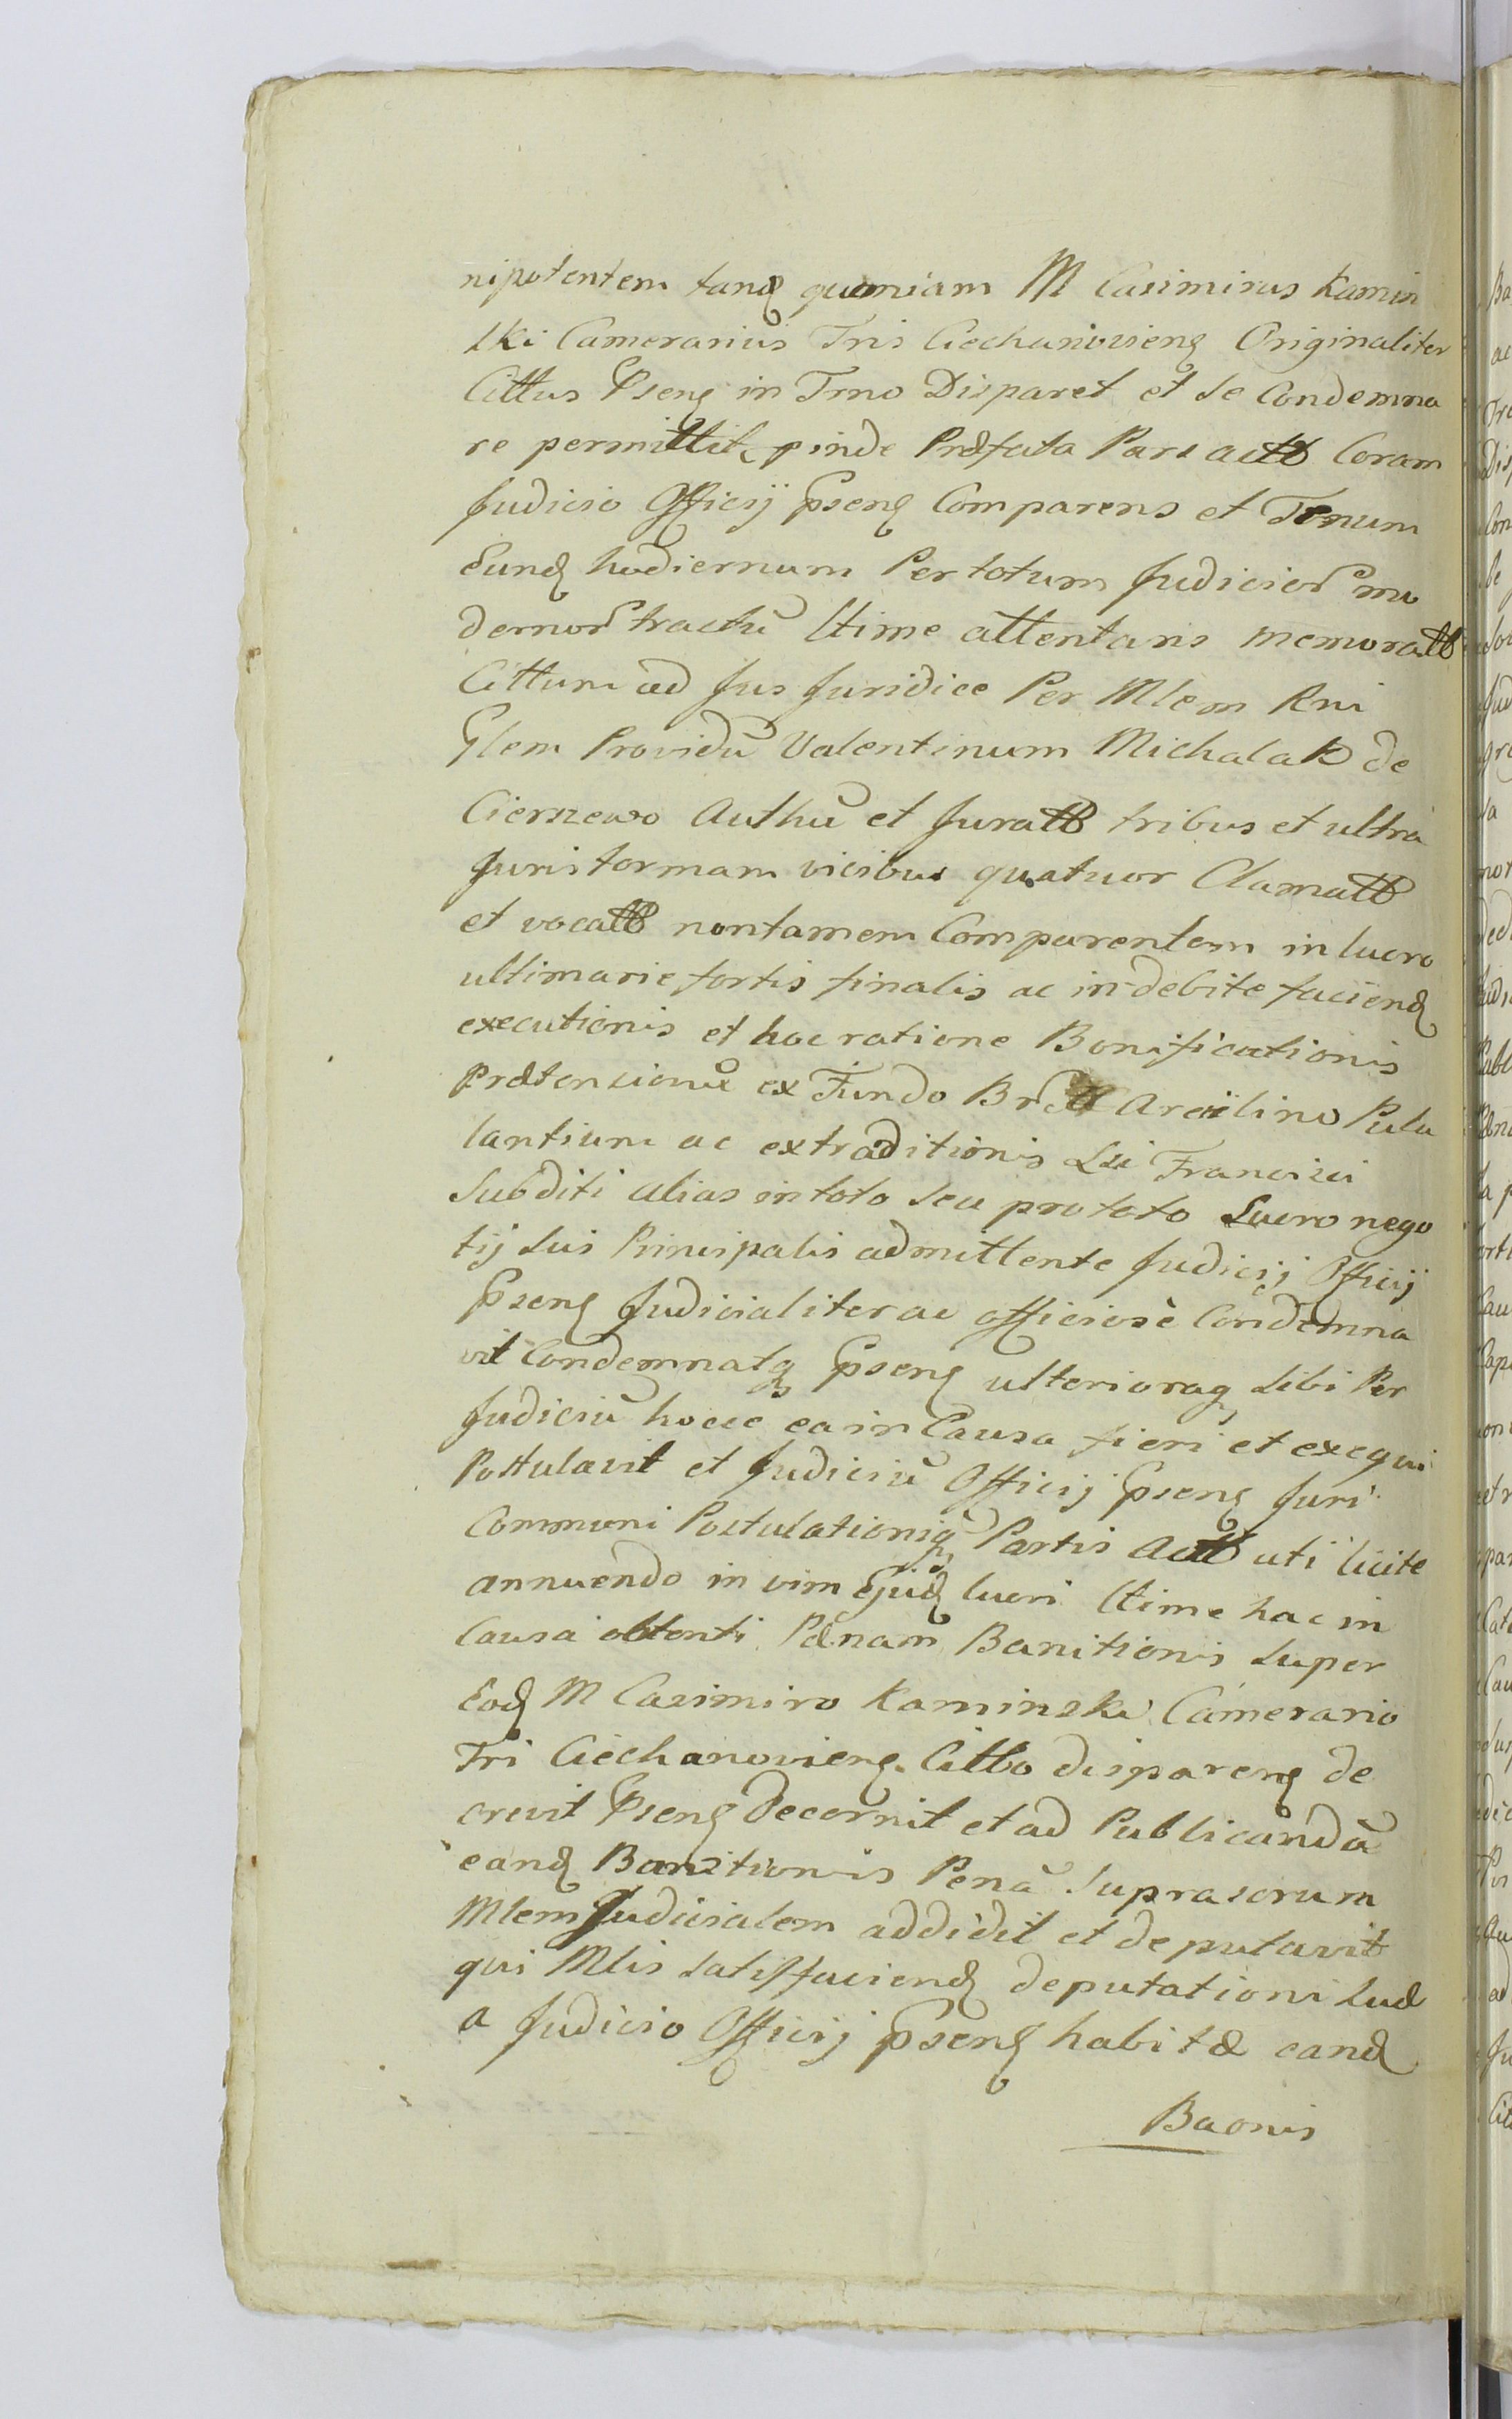 nipotentem tanq quoniam M Casimirus Kamin
ski Camerarius Tris Ciechanoviens Originaliter
Cittus Psens in Tmo Disparet et se Condemna
re permittit, pinde Præfata Pars actt Coram
Judicio Officij Psens Comparens et Tmum
Eund hodiernum Per totum Judicior mo
dernor tractũ ltime attentans memoratt
Cittum ad Jus Juridice Per Mlem Rni
Glem Providũ Valentinum Michalak de
Cierszewo Authũ et Juratt tribus et ultra
Juris formam vicibus quatuor Clamatt
et vocatt nontamen Comparentem in lucro
ultimarie fortis finalis ac in debite faciend
executionis et hoc ratione Bonificationis
Prætensionũ ex Fundo Brtt Arcilino Pulu
lantium ac extraditionis Lsi Francisci
Subditi alias in toto seu pro toto Lucro nego
tij sui Principalis admittente Judicij Officij
Psens Judicialiter ac officiosè Condemna
vit Condemnatq Psens ulterioraq sibi Per
Judiciũ hocce ea in Causa fieri et exequi
Postulavit et Judiciũ Officij Psens Juri
Communi Postulationiq Partis Actt uti licite
annuendo in vim Ejusd lucri ltime hac in
Causa obtenti Pænam Banitionis super
Eod M Casimiro Kaminski Camerario
Tri Ciechanoviens. Citto disparens de
crevit Psens Decernit et ad Publicandã
eand Banitionis Penã suprascrum
Mlem Judicialem addidit et deputavit
qui Mlis satisfaciend deputationi suæ
a Judicio Officij Psens habitæ eand
Baonis